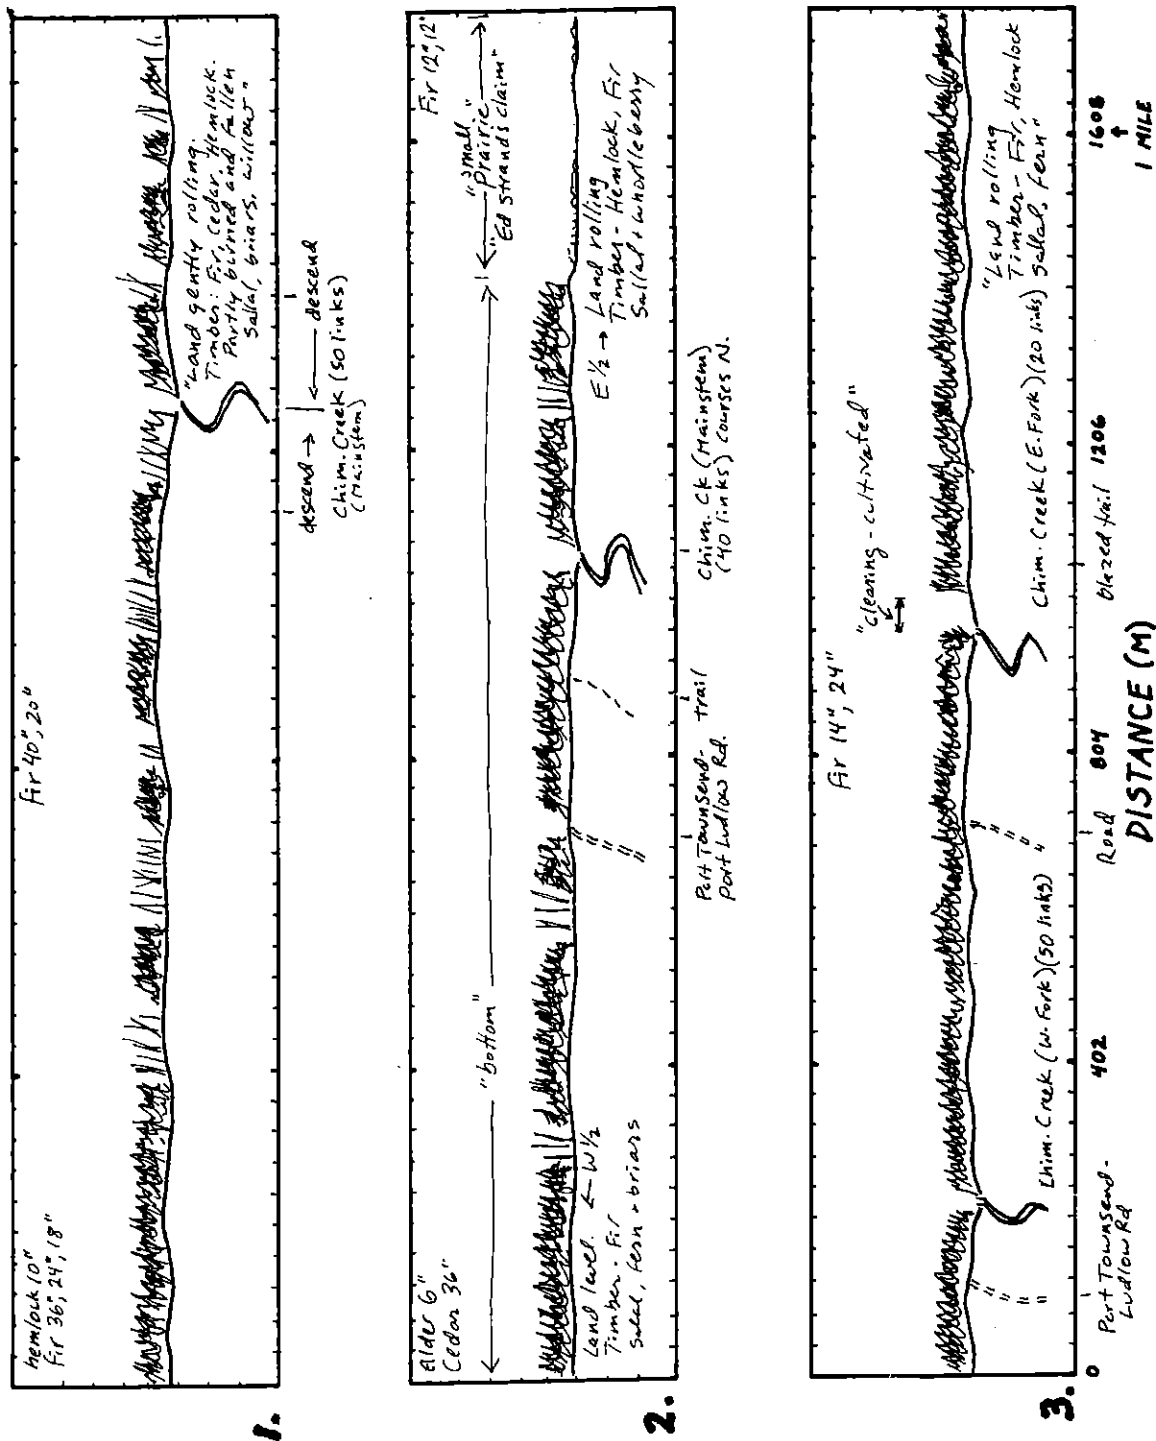 1.
hemlock 10"
Fir 36", 24", 18"
Fir 40", 20"
"Land gently rolling.
Timber: Fir, Cedar, Hemlock.
Partly burned and fallen
Sallal, briars, willow"
descend →
← descend
Chim. Creek (50 links)
(Mainstem)
2.
Alder 6"
Cedar 36"
Fir 12", 12"
"bottom"
"Small
Prairie"
"Ed Strands claim"
Land level. ← W 1/2
Timber - Fir
Salal, fern + briars
E 1/2 → Land rolling
Timber - Hemlock, Fir
Sallal + whortleberry
Port Townsend-
Port Ludlow Rd.
trail
Chim. Ck (Mainstem)
(40 links) courses N.
3.
Fir 14", 24"
"clearing - cultivated"
"Land rolling
Timber - Fir, Hemlock
Sallal, fern"
Chim. Creek (W. Fork) (50 links)
Chim. Creek (E. Fork) (20 links)
0
402
804
1206
1608
↑
1 MILE
Port Townsend-
Ludlow Rd
Road
blazed trail
DISTANCE (M)